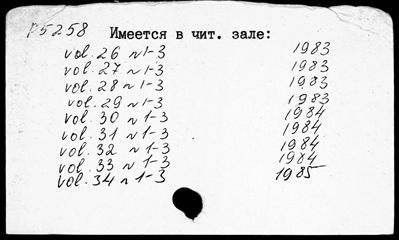 P5258 Имеется в чит. зале:
vol. 26 n 1-3 1983
vol. 27 n 1-3 1983
vol. 28 n 1-3 1983
vol. 29 n 1-3 1983
vol. 30 n 1-3 1984
vol. 31 n 1-3 1984
vol. 32 n 1-3 1984
vol. 33 n 1-3 1984
vol. 34 n 1-3 1985